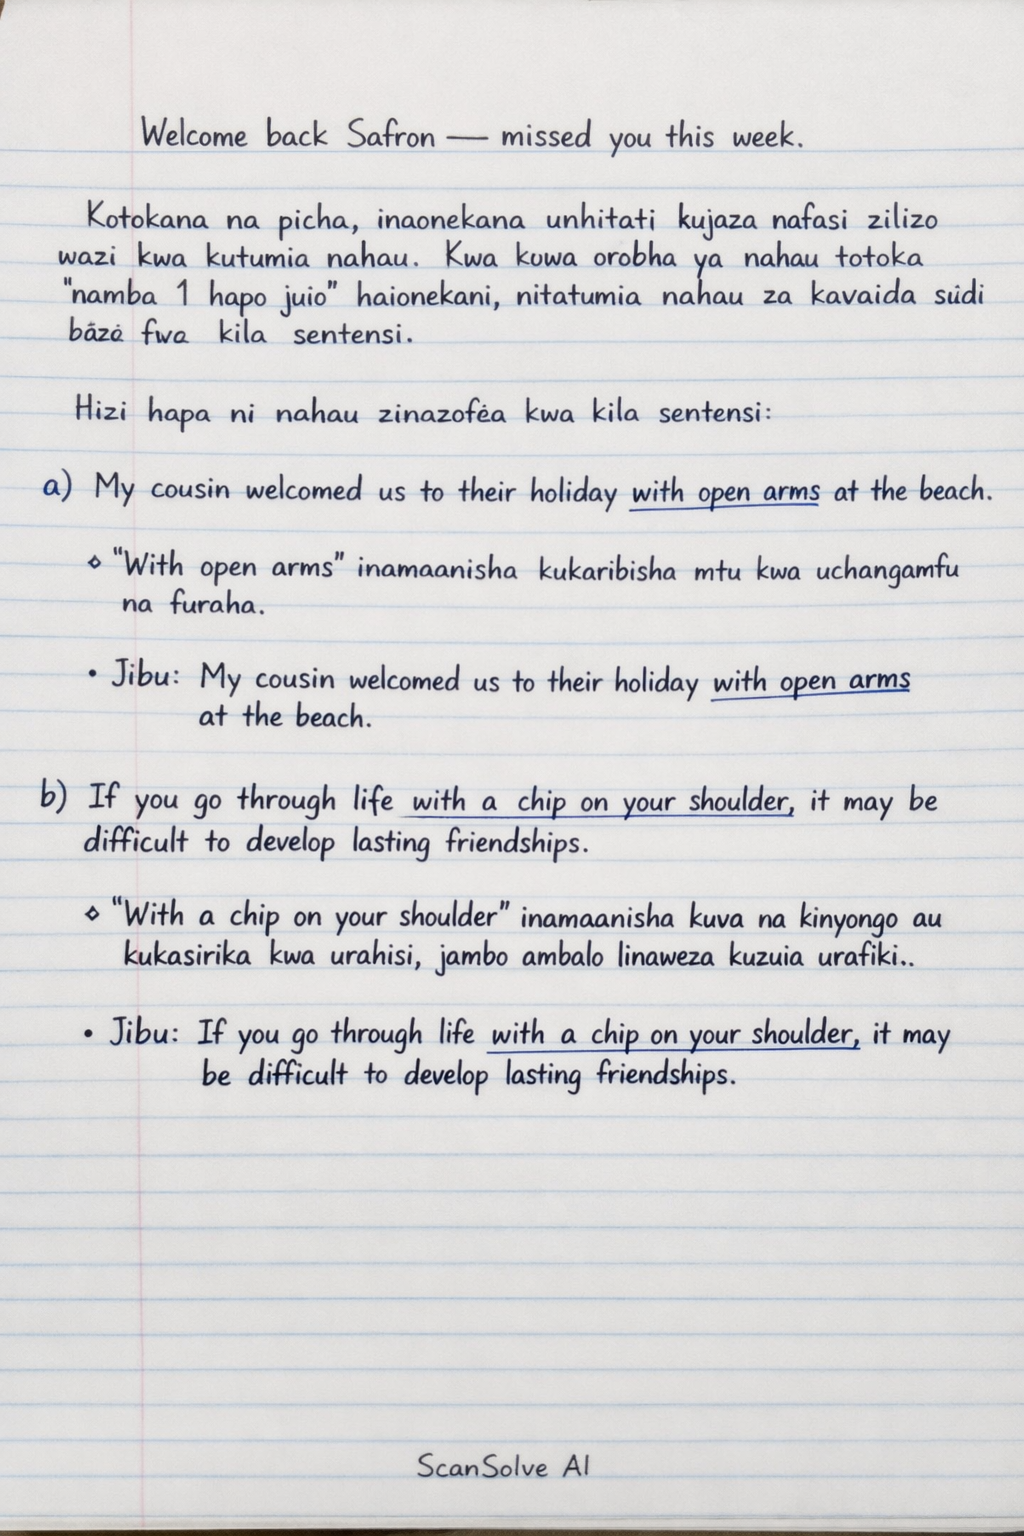 Welcome back Safron — missed you this week.
Kotokana na picha, inaonekana unhitati kujaza nafasi zilizo
wazi kwa kutumia nahau. Kwa kuwa orobha ya nahau totoka
"namba 1 hapo juio" haionekani, nitatumia nahau za kavaida südi
bázá fwa kila sentensi.
Hizi hapa ni nahau zinazoféa kwa kila sentensi:
a) My cousin welcomed us to their holiday with open arms at the beach.
⋄ "With open arms" inamaanisha kukaribisha mtu kwa uchangamfu
na furaha.
• Jibu: My cousin welcomed us to their holiday with open arms
at the beach.
b) If you go through life with a chip on your shoulder, it may be
difficult to develop lasting friendships.
⋄ "With a chip on your shoulder" inamaanisha kuva na kinyongo au
kukasirika kwa urahisi, jambo ambalo linaweza kuzuia urafiki..
• Jibu: If you go through life with a chip on your shoulder, it may
be difficult to develop lasting friendships.
ScanSolve AI